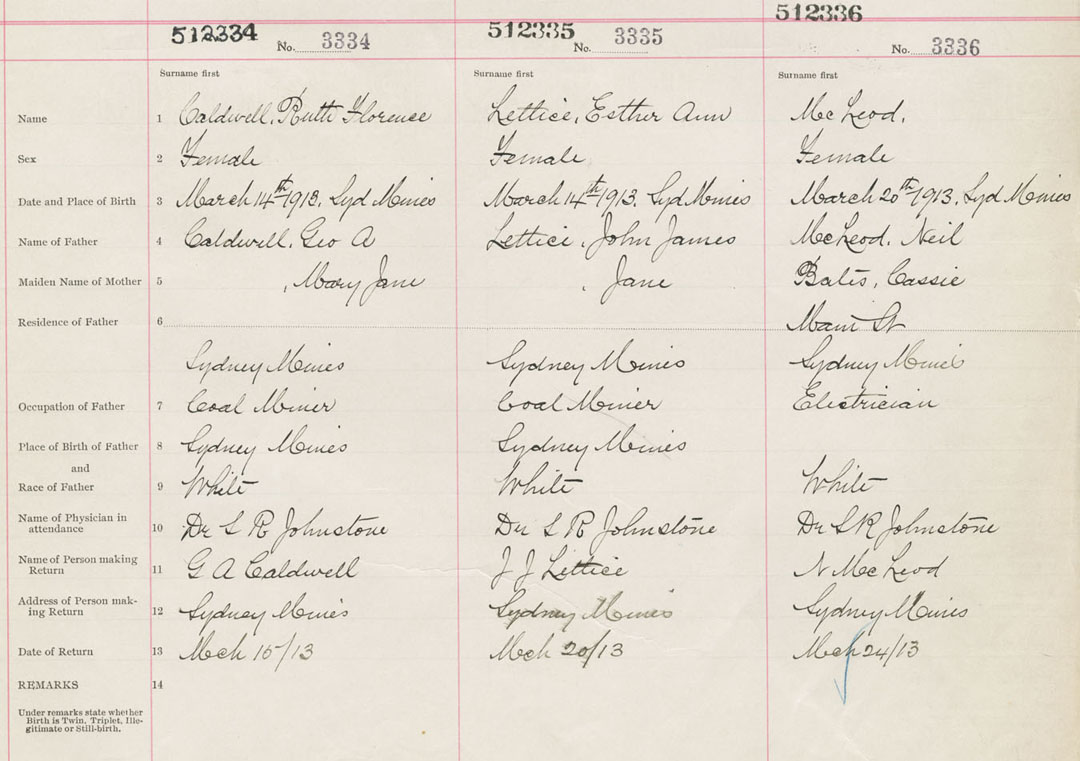 512334 512335 512336
No. 3334 No. 3335 No. 3336
Surname first Surname first Surname first
Name 1 Caldwell, Ruth Florence Lettice, Esther Ann McLeod.
Sex 2 Female Female Female
Date and Place of Birth 3 March 14th 1913. Syd Mines March 14th 1913. Syd Mines March 20th 1913. Syd Mines
Name of Father 4 Caldwell, Geo A Lettice, John James McLeod, Neil
Maiden Name of Mother 5 , Mary Jane , Jane Bates, Cassie
Residence of Father 6 Main St
Sydney Mines Sydney Mines Sydney Mines
Occupation of Father 7 Coal Miner Coal Miner Electrician
Place of Birth of Father 8 Sydney Mines Sydney Mines
and
Race of Father 9 White White White
Name of Physician in
attendance 10 Dr L R Johnstone Dr L R Johnstone Dr L R Johnstone
Name of Person making
Return 11 G A Caldwell J J Lettice N McLeod
Address of Person mak-
ing Return 12 Sydney Mines Sydney Mines Sydney Mines
Date of Return 13 Mch 15/13 Mch 20/13 Mch 24/13
REMARKS 14
Under remarks state whether
Birth is Twin, Triplet, Ille-
gitimate or Still-birth.